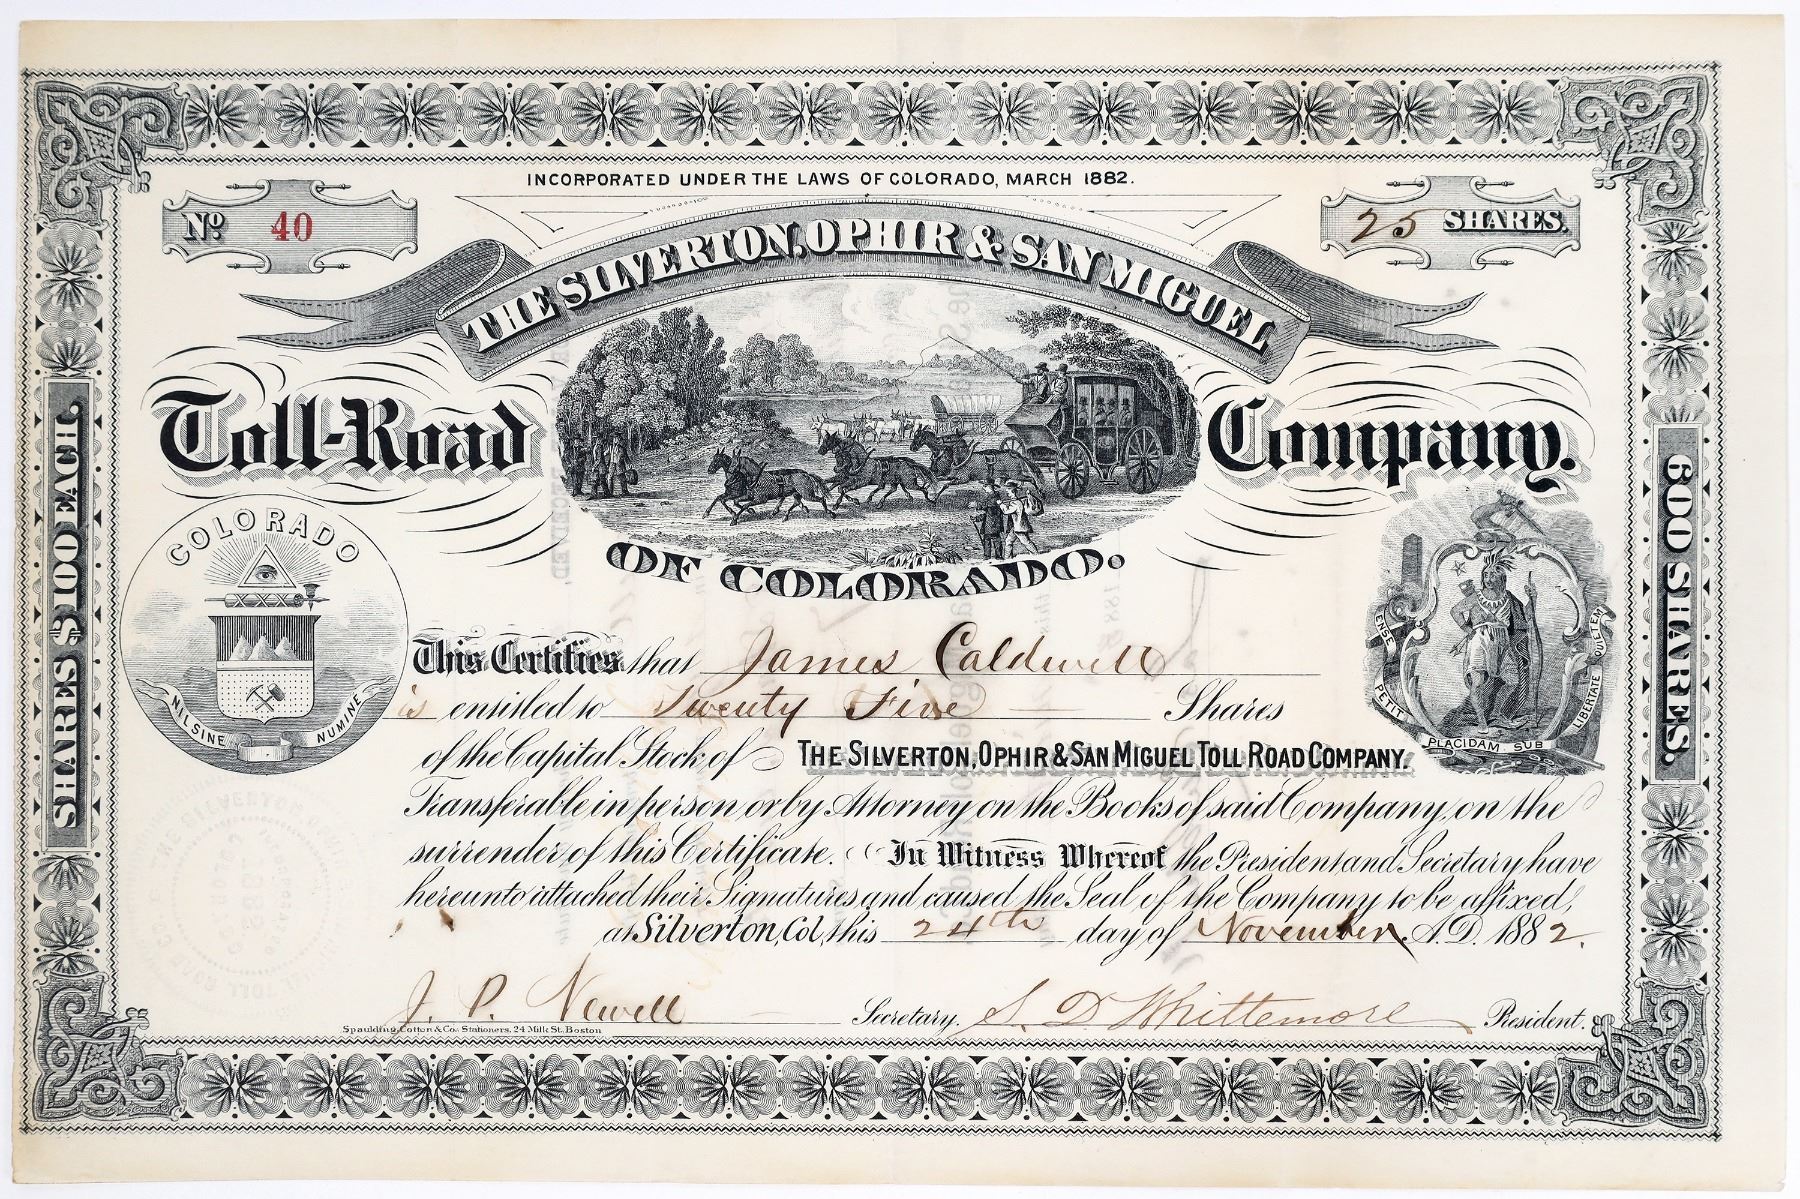 INCORPORATED UNDER THE LAWS OF COLORADO, MARCH 1882.
No. 40
25 SHARES.
THE SILVERTON, OPHIR & SAN MIGUEL
Toll-Road Company.
OF COLORADO.
SHARES $100 EACH.
600 SHARES.
COLORADO
NIL SINE NUMINE
ENSE PETIT PLACIDAM SUB LIBERTATE QUIETEM
This Certifies that James Caldwell
is entitled to Twenty Five — Shares
of the Capital Stock of THE SILVERTON, OPHIR & SAN MIGUEL TOLL ROAD COMPANY.
Transferable in person or by Attorney on the Books of said Company, on the
surrender of this Certificate. In Witness Whereof the President and Secretary have
hereunto attached their Signatures and caused the Seal of the Company to be affixed,
at Silverton, Col, this 24th day of November A.D. 1882.
J. P. Newell Secretary. S. D Whittemore President.
Spaulding, Cotton & Co. Stationers, 24 Milk St. Boston